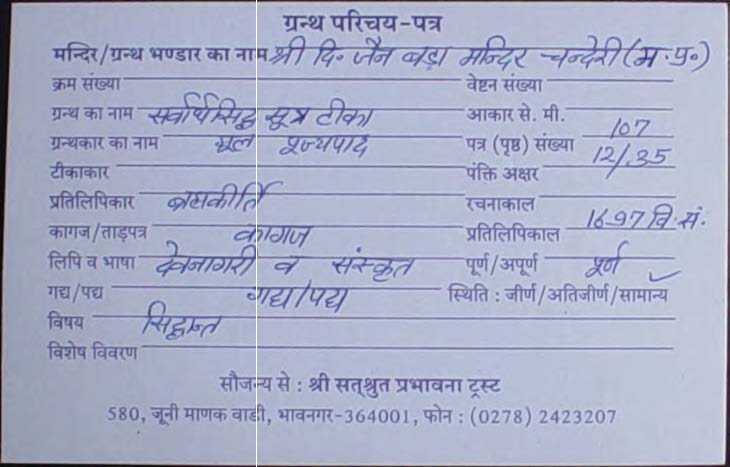 ग्रन्थ परिचय-पत्र
मन्दिर/ग्रन्थ भण्डार का नाम श्री दि. जैन बड़ा मन्दिर चन्देरी (म.प्र.)
क्रम संख्या वेष्टन संख्या
ग्रन्थ का नाम सर्वार्थसिद्धि सूत्र टीका आकार से. मी.
ग्रन्थकार का नाम मूल पूज्यपाद पत्र (पृष्ठ) संख्या 107
टीकाकार पंक्ति अक्षर 12/35
प्रतिलिपिकार ब्रह्मकीर्ति रचनाकाल
कागज/ताड़पत्र कागज प्रतिलिपिकाल 1697 वि. सं.
लिपि व भाषा देवनागरी व संस्कृत पूर्ण/अपूर्ण पूर्ण
गद्य/पद्य गद्य/पद्य स्थिति : जीर्ण/अतिजीर्ण/सामान्य ✓
विषय सिद्धान्त
विशेष विवरण
सौजन्य से : श्री सत्श्रुत प्रभावना ट्रस्ट
580, जूनी माणक वाडी, भावनगर-364001, फोन : (0278) 2423207